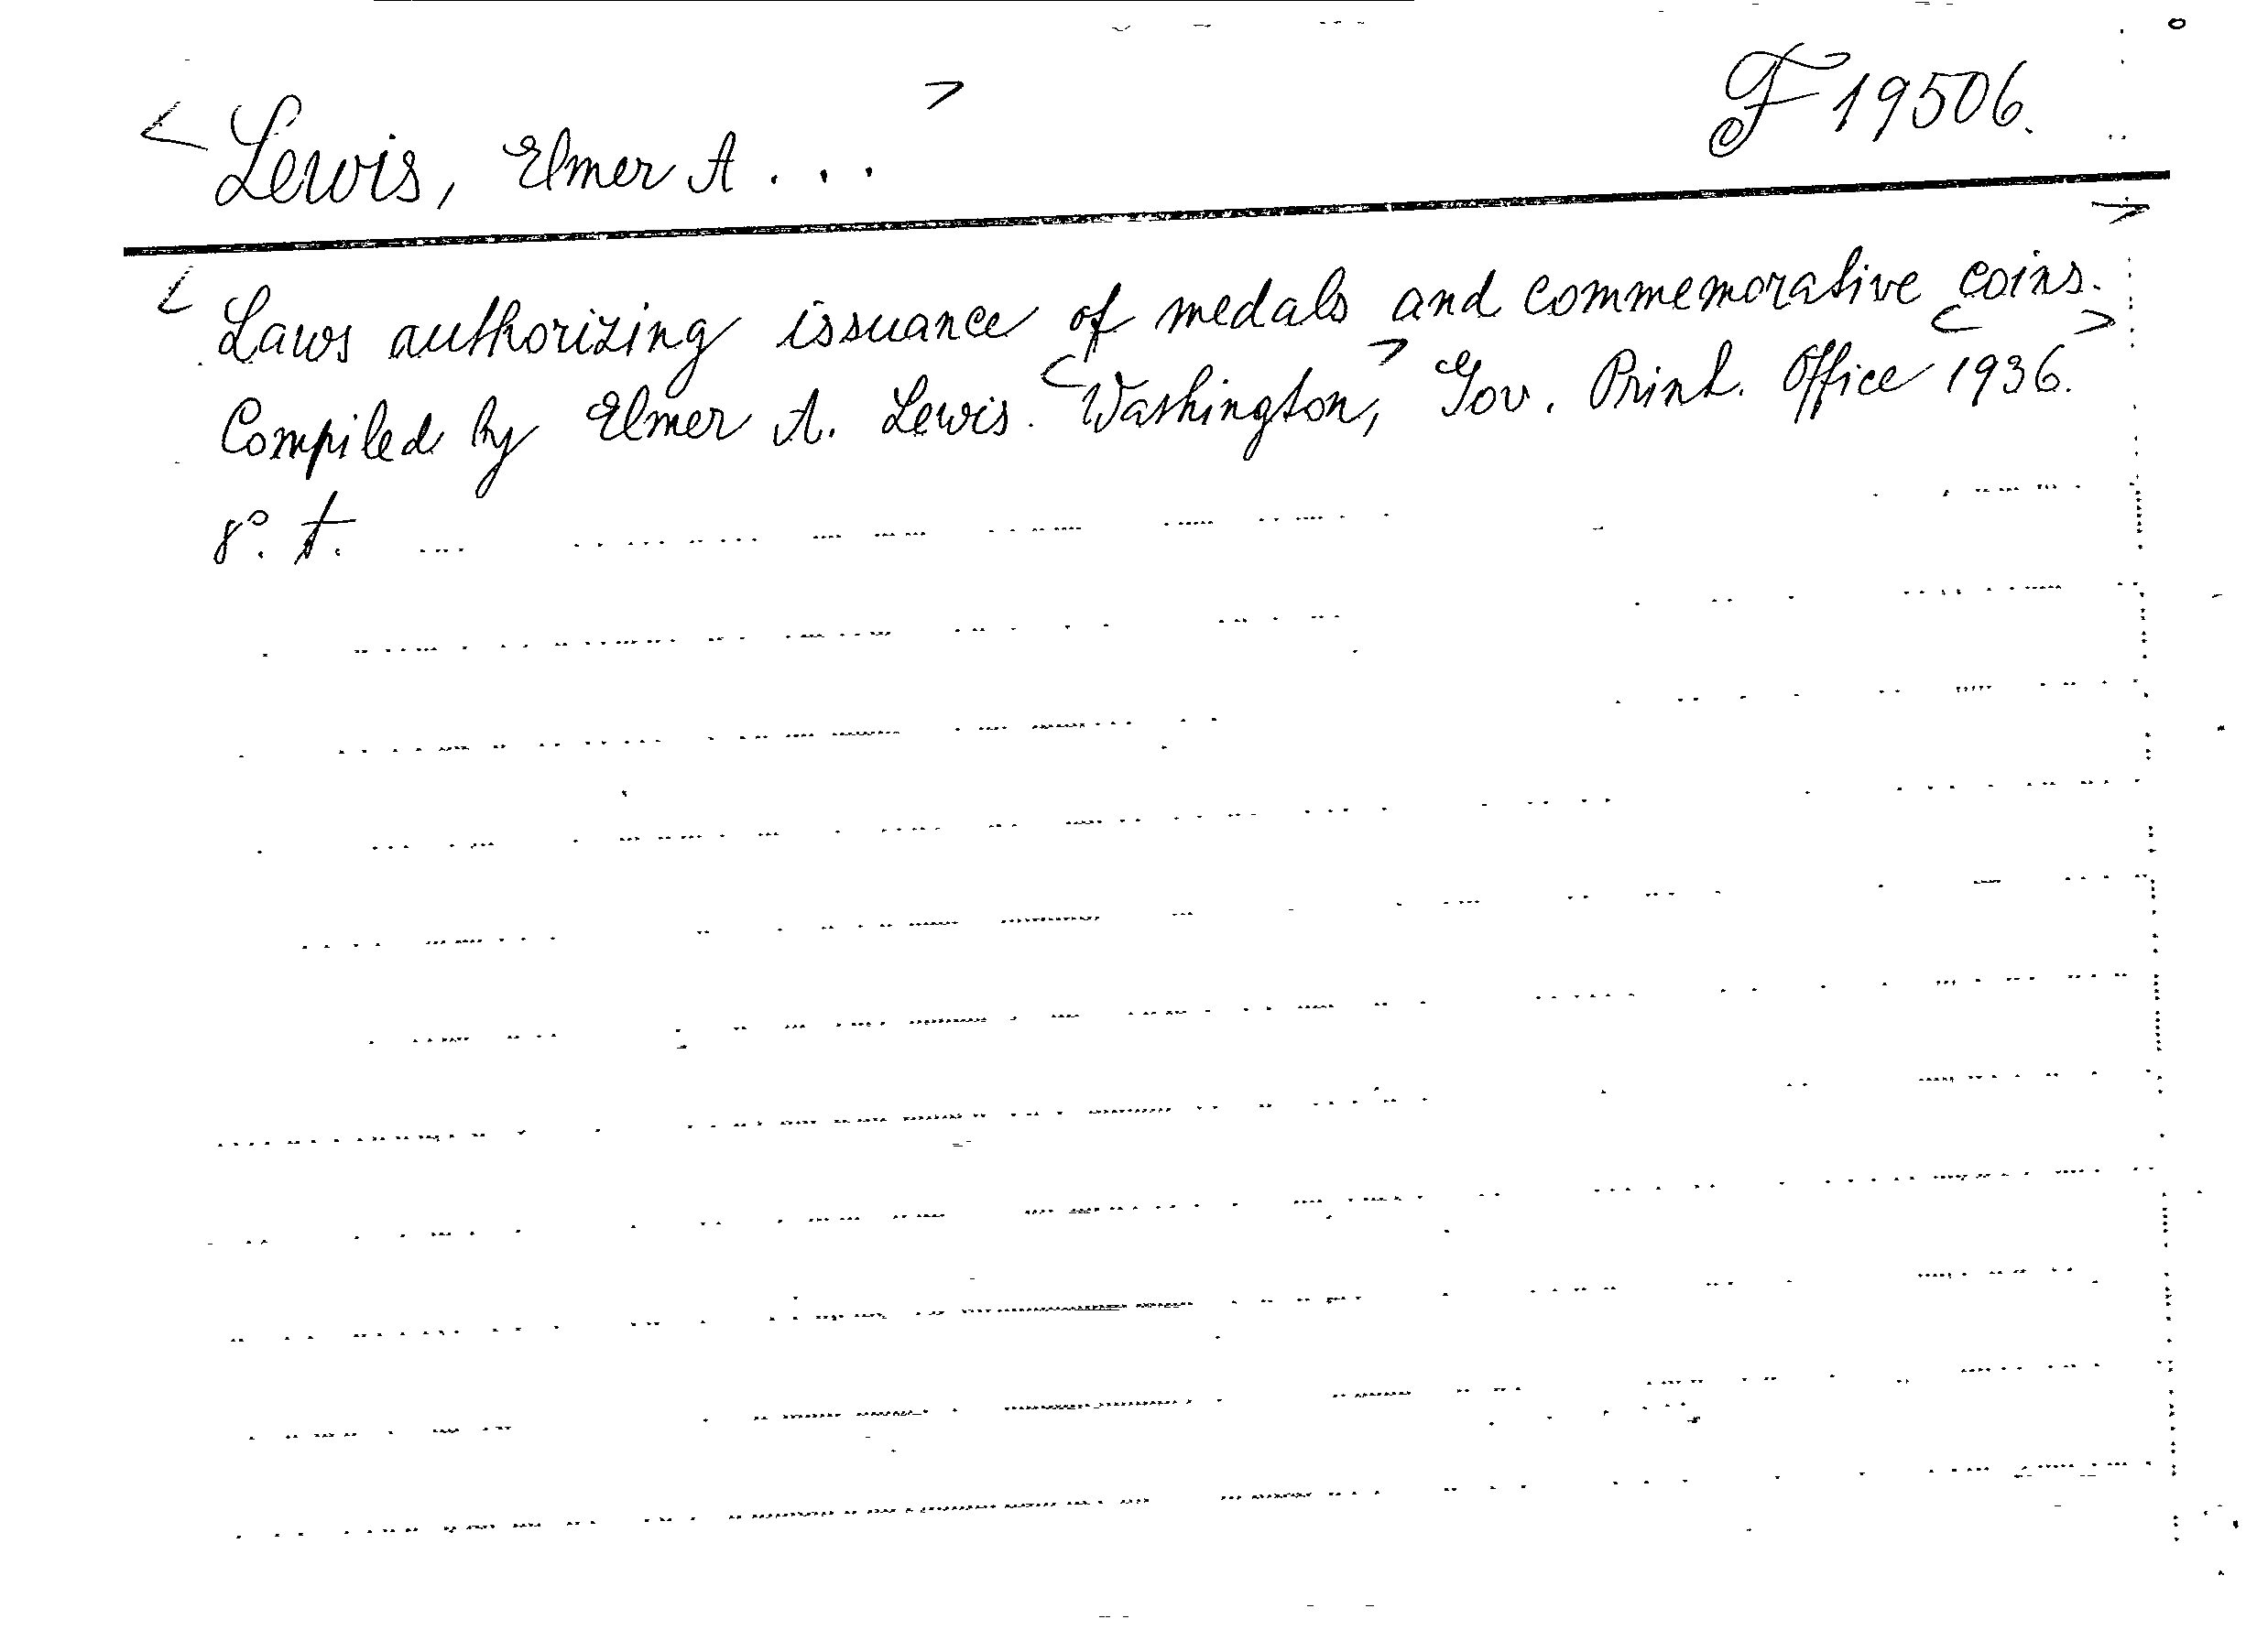 <Lewis, Elmer A...> F 19506.
<Laws authorizing issuance of medals and commemorative coins.>
Compiled by Elmer A. Lewis. <Washington,> Gov. Print. Office <1936.>
8°. t.